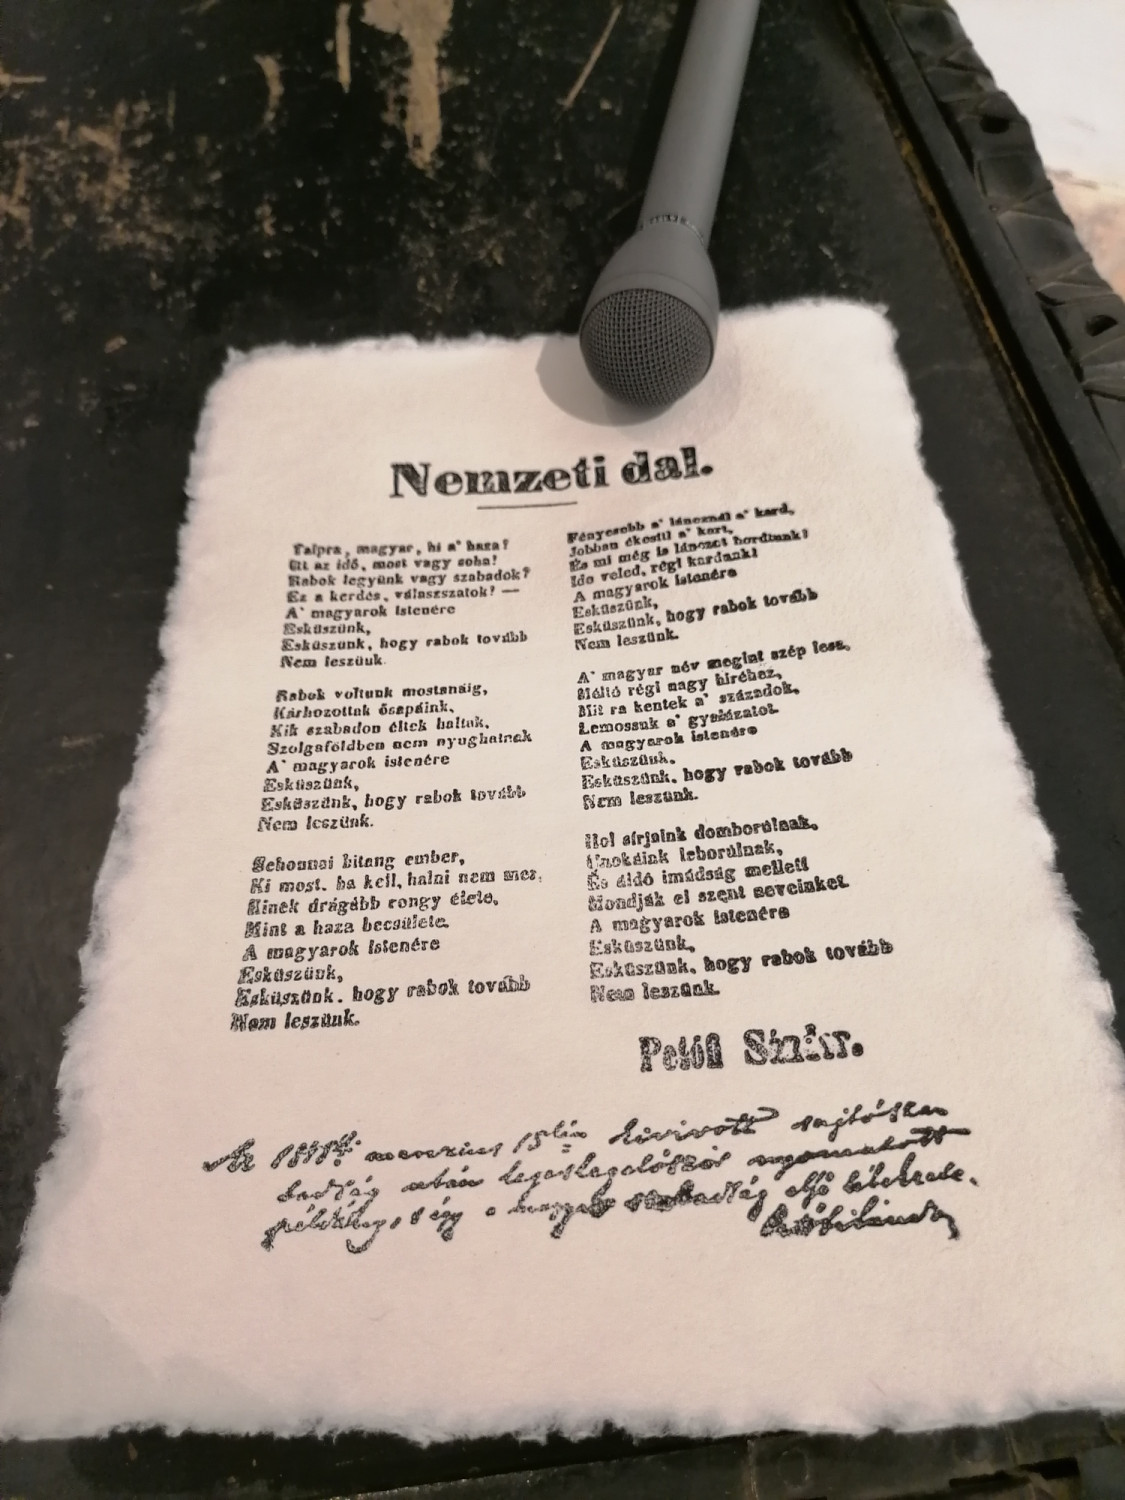 Nemzeti dal.
Talpra, magyar, hi a' haza!
Itt az idő, most vagy soha!
Rabok legyünk vagy szabadok?
Ez a kérdés, válaszszatok! —
A' magyarok istenére
Esküszünk,
Esküszünk, hogy rabok tovább
Nem leszünk.
Rabok voltunk mostanáig,
Kárhozottak ősapáink,
Kik szabadon éltek haltak,
Szolgaföldben nem nyughatnak
A' magyarok istenére
Esküszünk,
Esküszünk, hogy rabok tovább
Nem leszünk.
Sehonnai bitang ember,
Ki most, ha kell, halni nem mer,
Kinek drágább rongy élete,
Mint a haza becsülete.
A magyarok istenére
Esküszünk,
Esküszünk, hogy rabok tovább
Nem leszünk.
Fényesebb a' láncznál a' kard,
Jobban ékesíti a' kart,
És mi még is lánczot hordtunk!
Ide veled, régi kardunk!
A magyarok istenére
Esküszünk,
Esküszünk, hogy rabok tovább
Nem leszünk.
A' magyar név megint szép lesz,
Méltó régi nagy hiréhez,
Mit rá kentek a' századok,
Lemossuk a' gyalázatot.
A magyarok istenére
Esküszünk,
Esküszünk, hogy rabok tovább
Nem leszünk.
Hol sírjaink domborúlnak,
Unokáink leborúlnak,
És áldó imádság mellett
Mondják el szent neveinket.
A magyarok istenére
Esküszünk,
Esküszünk, hogy rabok tovább
Nem leszünk.
Petőfi Sándor.
Az 1848ki marczius 15kén kivívott sajtósza-
badság után legeslegelőször nyomatott
példány, s így a magyar szabadság első lélekzete.
Petőfi Sándor